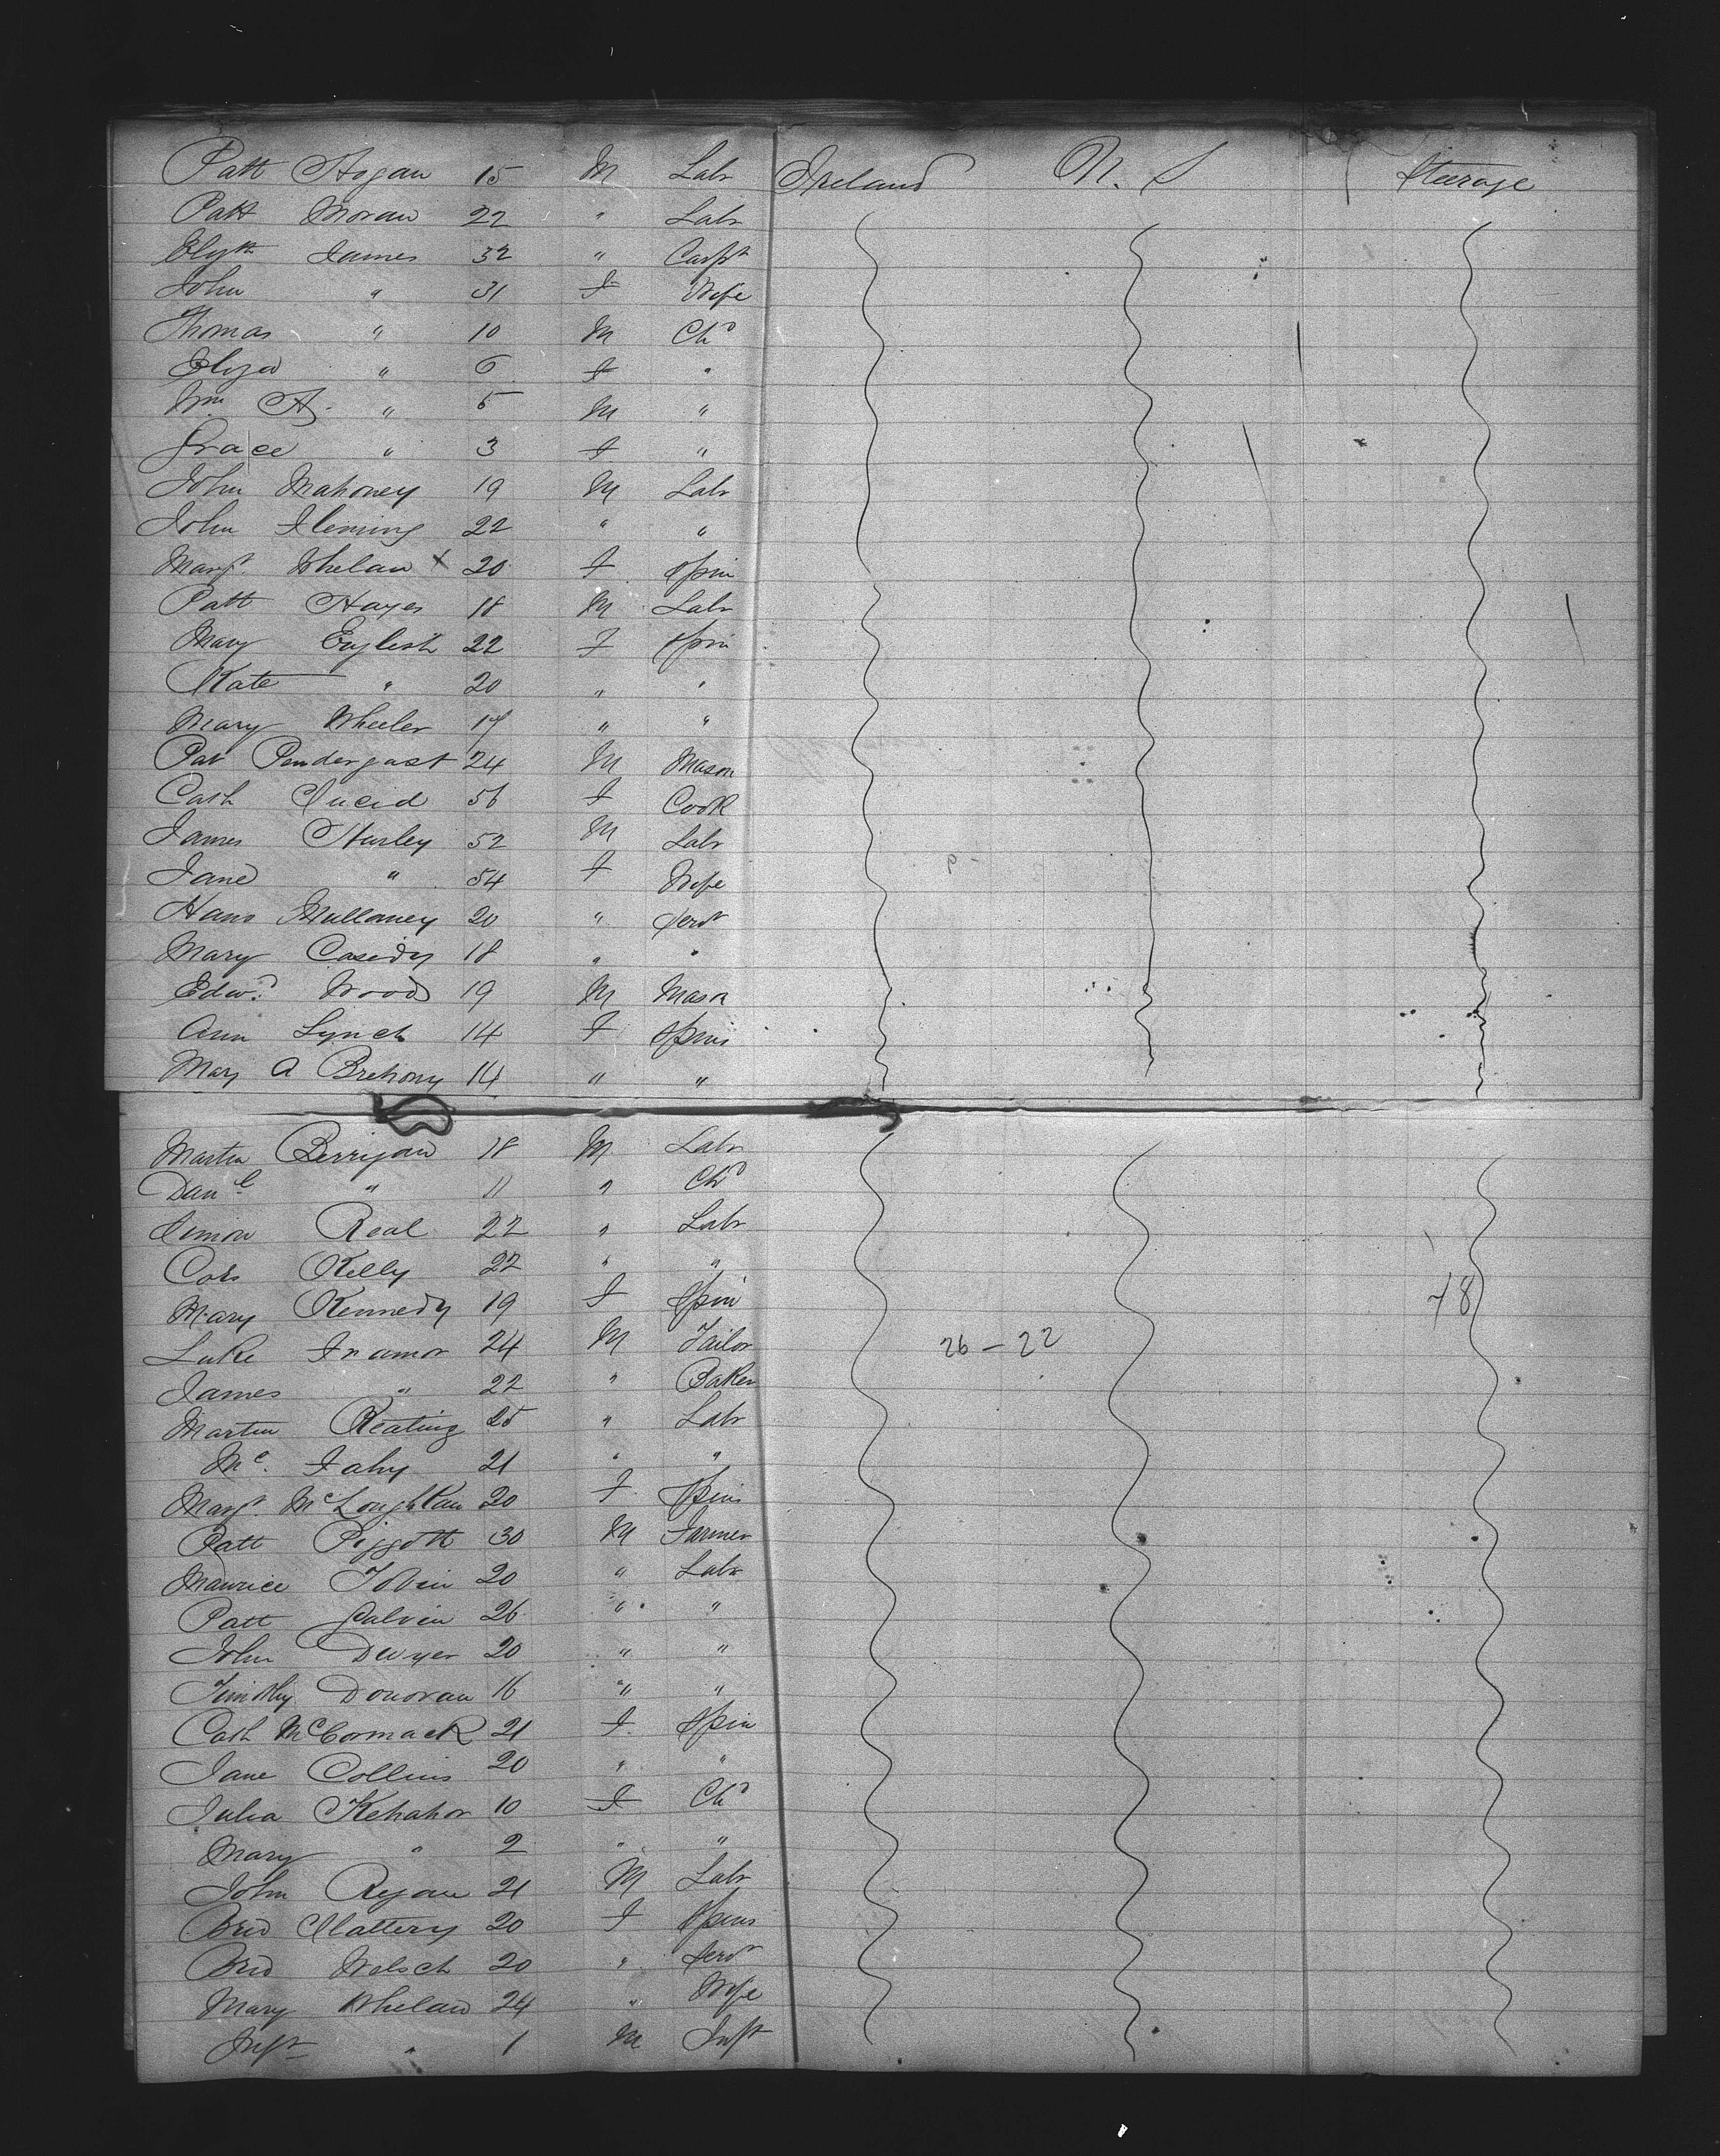 Patt Hogan 15 M Labr Ireland U. S Steerage
Patt Moran 22 " Labr
Elizth James 32 " Carptr
John " 31 F Wife
Thomas " 10 M Chd
Eliza " 6 F "
Wm H. " 5 M "
Grace " 3 F "
John Mahoney 19 M Labr
John Fleming 22 " "
Margt. Whelan x 20 F Spin
Patt Hayes 18 M Labr
Mary English 22 F Spin
Kate " 20 " "
Mary Wheeler 17 " "
Pat Pendergast 24 M Mason
Cath Lucid 56 F Cook
James Hurley 52 M Labr
Jane " 54 F Wife
Mullaney 20 " Servt
Mary Casidy 18 " "
Edwd. Wood 19 M Mason
Ann Lynch 14 F Spins
Mary A Brehony 14 " "
Martin Berrigan 18 M Labr
Danl " 11 " Chd
Simon Real 22 " Labr
Kelly 22 " "
Mary Kennedy 19 F Spin 48
Luke 24 M Tailor 26 - 22
James " 22 " Baker
Martin Keating 25 " Labr
Fahy 21 " "
Margt. McLoughlan 20 F Spins
Patt Piggott 30 M Farmer
Maurice Tobin 20 " Labr
Patt Galvin 26 " "
John Dwyer 20 " "
Timothy Donovan 16 " "
Cath McCormack 21 F Spin
Jane Collins 20 " "
Julia Kehahor 10 F Chd
Mary " 2 " "
John Ryan 21 M Labr
Brid Slattery 20 F Spins
Brid Welsch 20 " Servt
Mary Whelan 24 " Wife
Inft " 1 M Inft